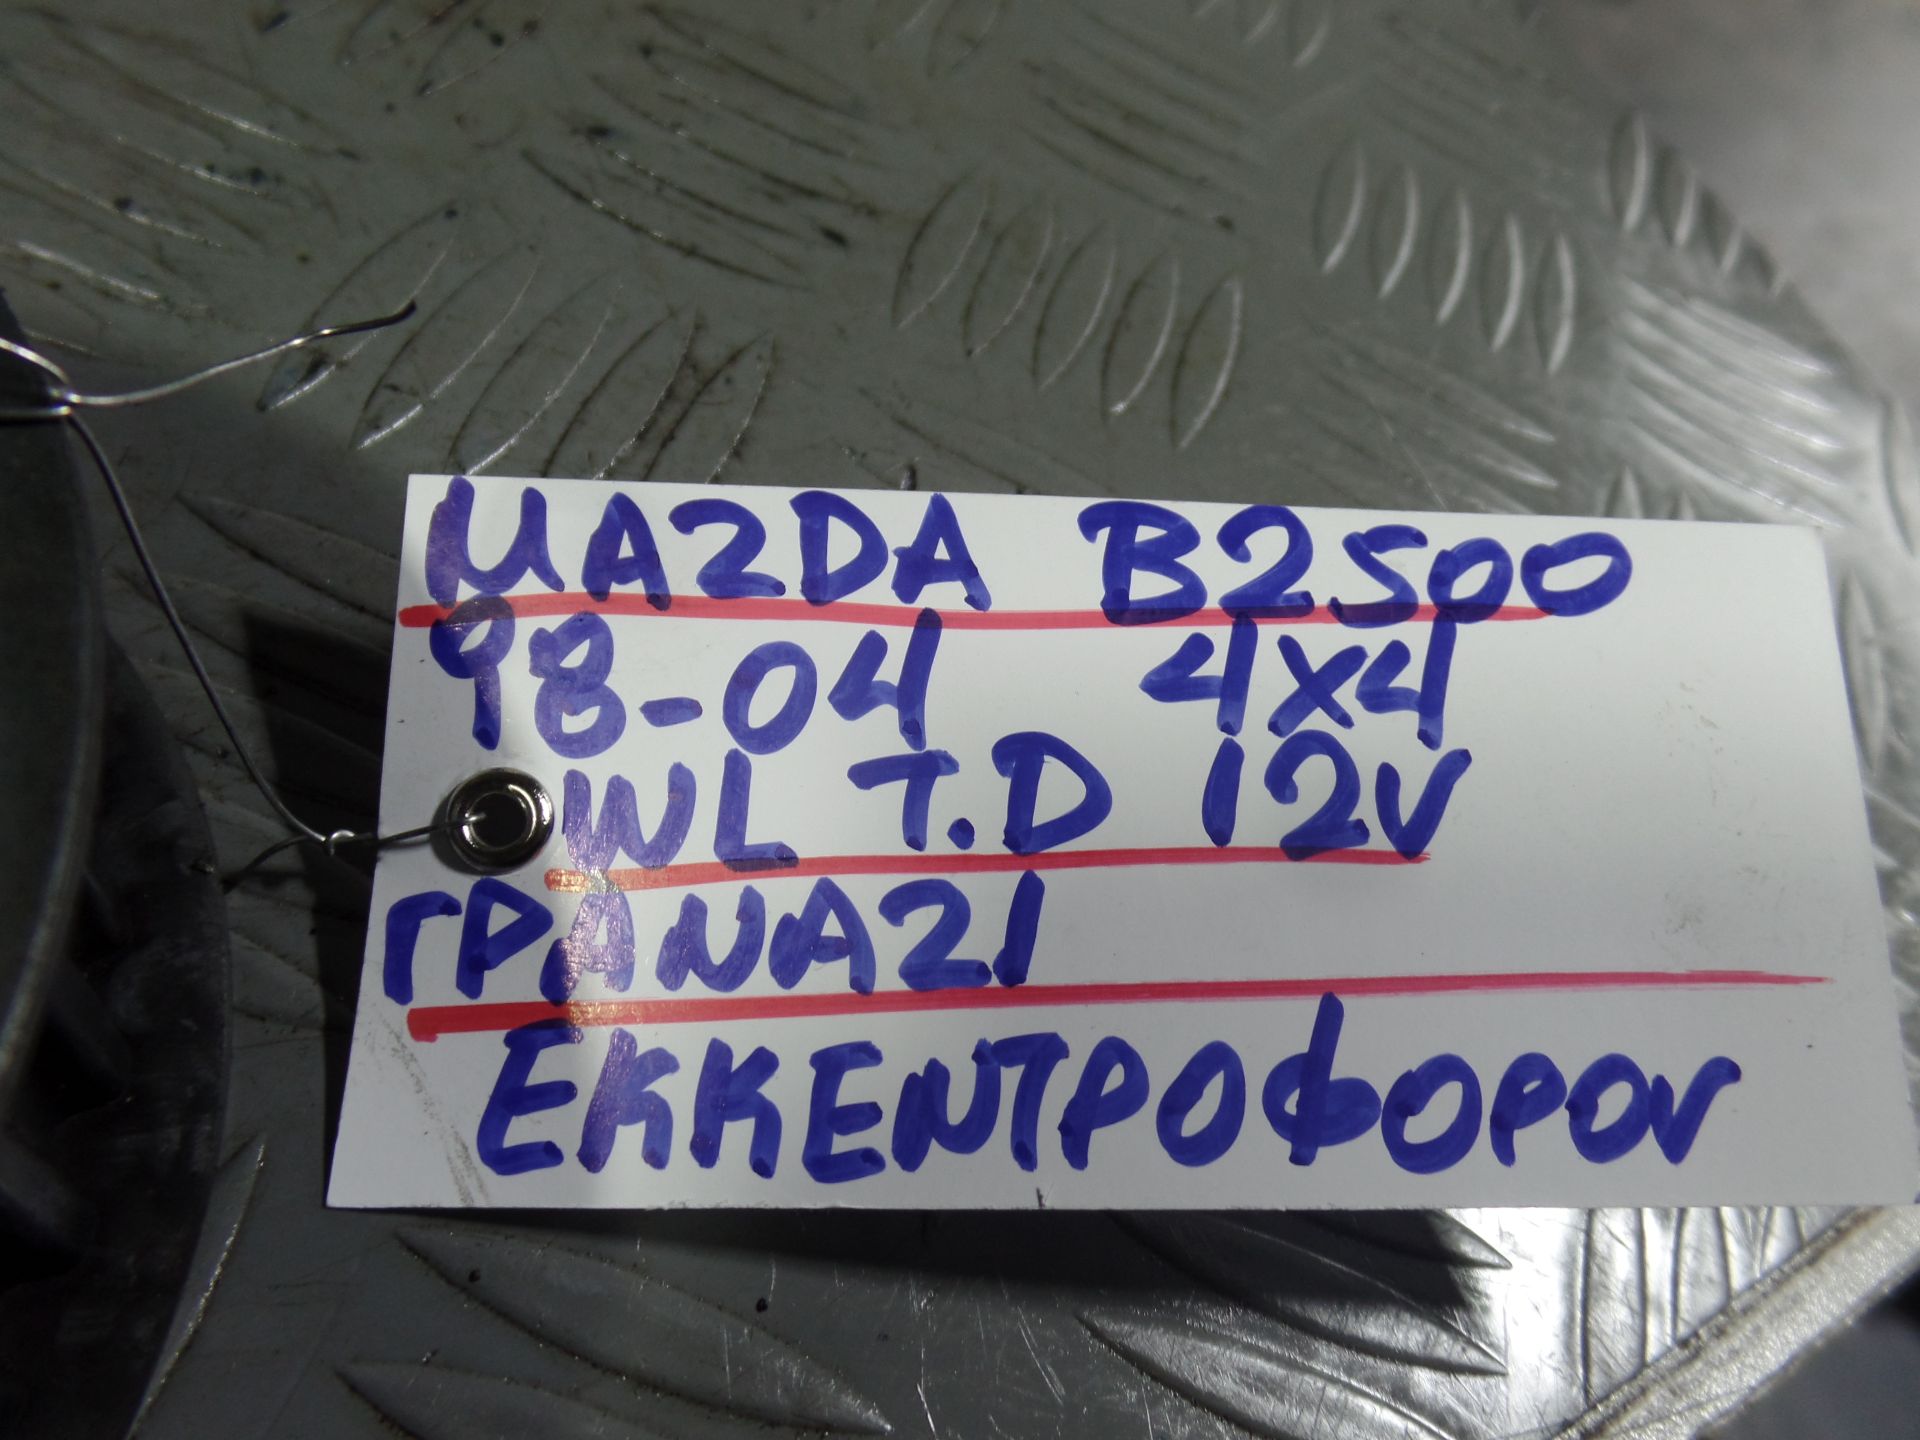 MAZDA B2500
98-04 4x4
WL T.D 12V
ΓΡΑΝΑΖΙ
ΕΚΚΕΝΤΡΟΦΟΡΟΥ